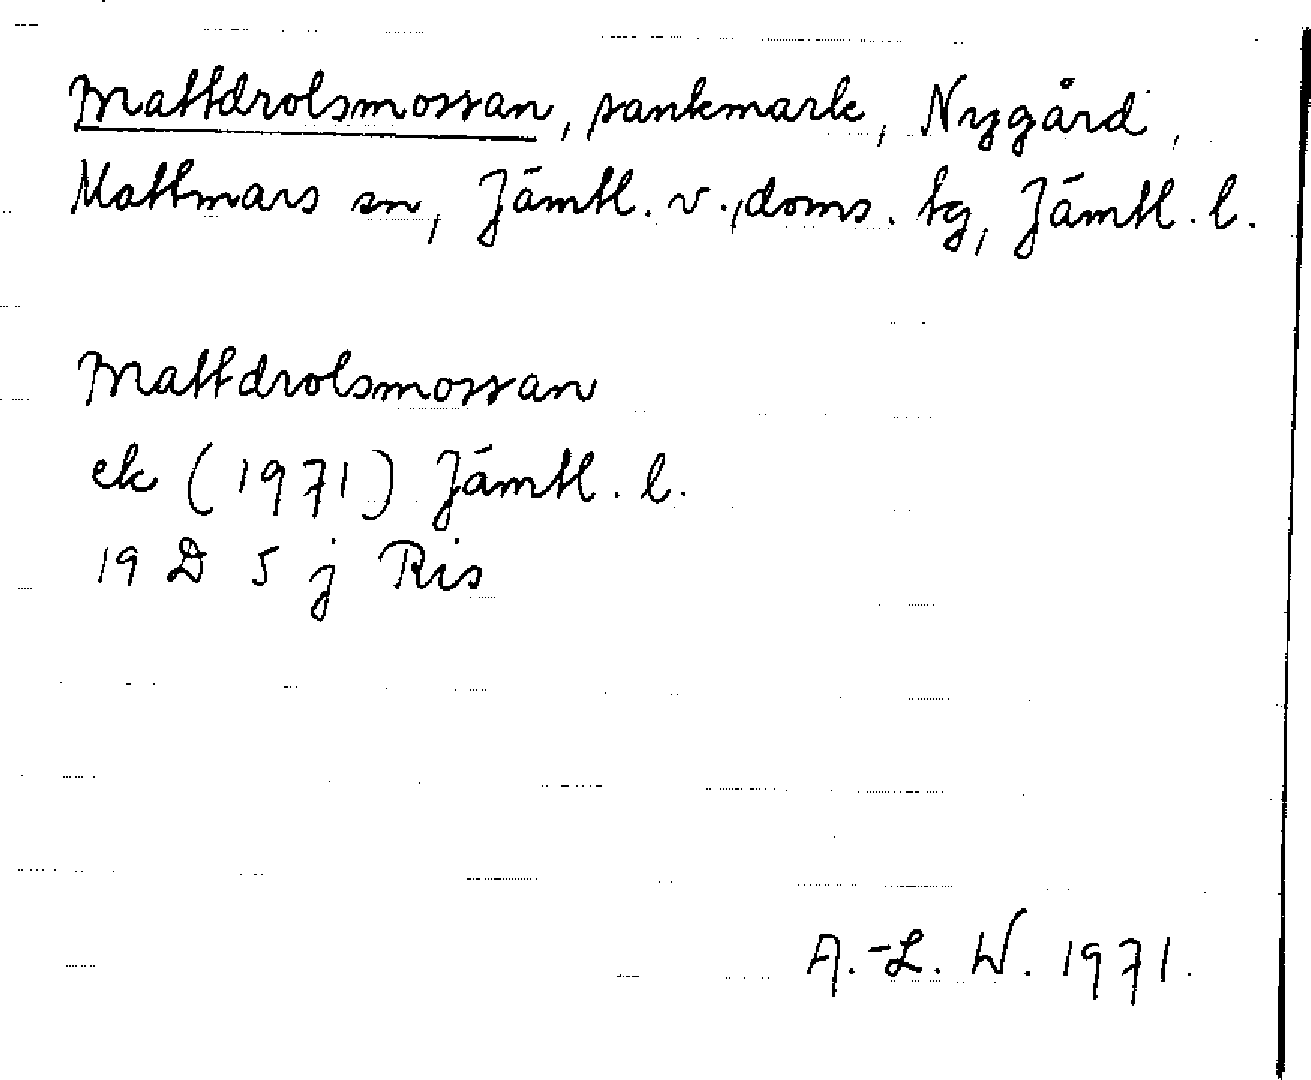 Mattdrolsmossan, sankmark, Nygård,
Mattmars sn, Jämtl. v., doms. tg, Jämtl. l.
Mattdrolsmossan
ek (1971) Jämtl. l.
19 D 5 j Ris
A.-L. W. 1971.